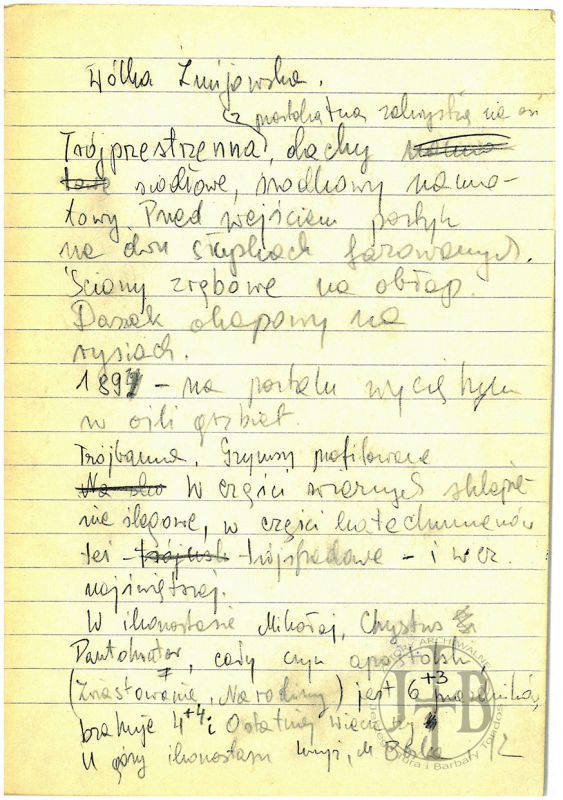 Wólka Żmijowska.
z prostokątną zakrystią na osi
Trójprzestrzenna, dachy
siodłowe, środkowy namio-
towy Przed wejściem portyk
na dwu słupkach fazowanych.
Ściany zrębowe na obłap.
Daszek okapowy na
rysiach.
189 – na portalu wycię
w ośli grzbiet.
Trójbanna. Gzymsy profilowane
W części wiernych sklepie-
nie żagowe, w części katechumenów
też – trójspadowe – i w cz.
najświętszej.
W ikonostasie Mikołaj, Chrystus
Pantokrator, cały czyn apostolski
(Zwiastowanie, Narodziny) jest 6+3 prazdników,
brakuje 4+4 i Ostatniej wieczerzy
U góry ikonostasu M. Boska i 12
ARCHIWALNE
JTB
Jerzego Tura i Barbary Tondos